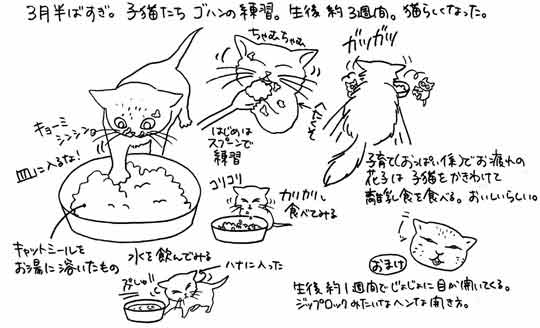 3月半ばすぎ。子猫たち ゴハンの練習。生後 約3週間。猫らしくなった。
ちゃむちゃむ
ガツガツ
キョーミ
シンシン
皿に入るな!
はじめは
スプーンで
練習
へたくそ
コリコリ
カリカリも
食べてみる
子育て(おっぱい係)でお疲れの
花子は 子猫をかきわけて
離乳食を食べる。おいしいらしい。
キャットミールを
お湯に溶いたもの
水を飲んでみる
ハナに入った
ぶしゅ!!
おまけ
生後 約1週間でじょじょに目が開いてくる。
ジップロックみたいなヘンな開き方。